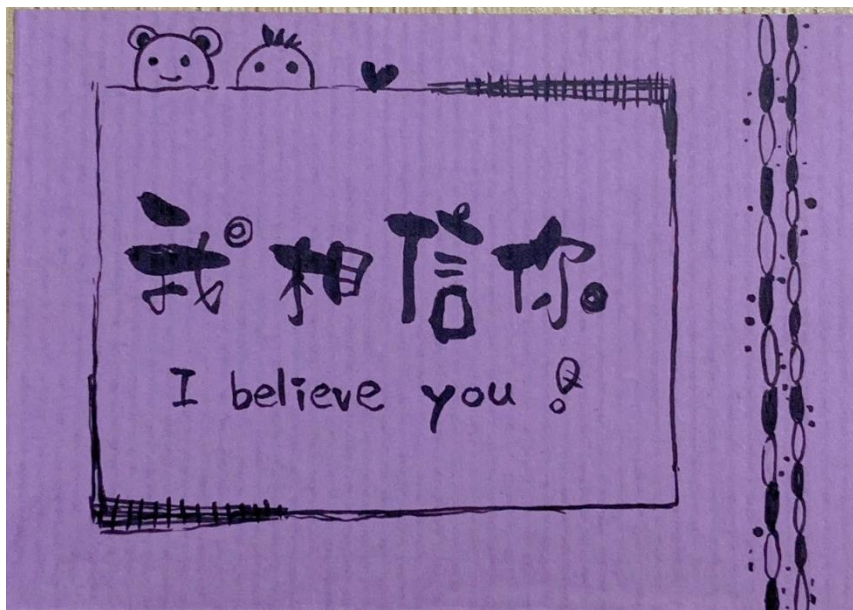 我相信你
I believe you!